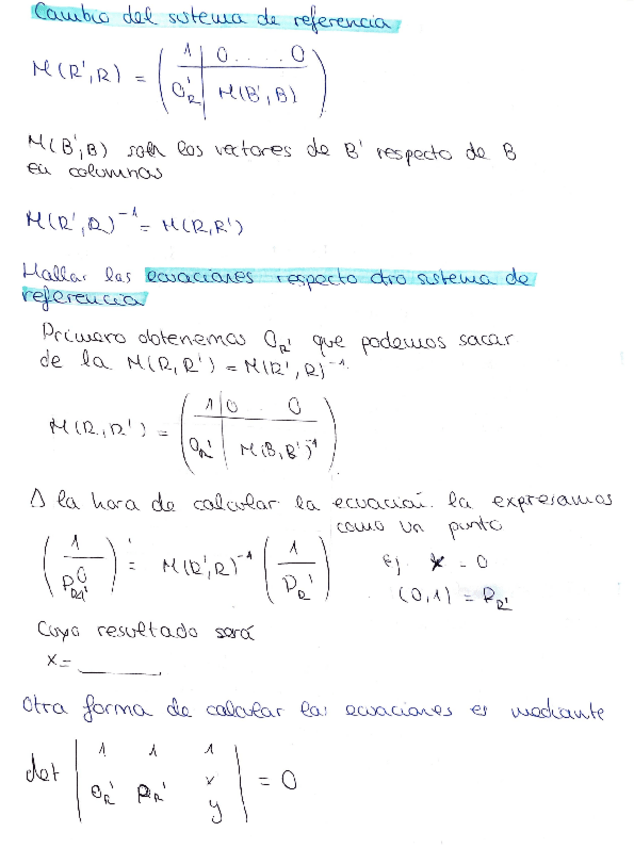 Cambio del sistema de referencia
M(R',R) = ( 1 | 0 . . . . 0
O'R | M(B',B) )
M(B',B) son los vectores de B' respecto de B
en columnas
M(R',R)⁻¹ = M(R,R')
Hallar las ecuaciones respecto otro sistema de
referencia
Primero obtenemos O_R' que podemos sacar
de la M(R,R') = M(R',R)⁻¹
M(R,R') = ( 1 | 0 0
O_R' | M(B,B')⁻¹ )
A la hora de calcular la ecuación la expresamos
como un punto
( 1 ) = M(R',R)⁻¹ ( 1 ) Ej x = 0
P_R' (0,1) = P_R'
Cuyo resultado será
x = ______
Otra forma de calcular las ecuaciones es mediante
det | 1 1 1 |
O_R' P_R' x = 0
y